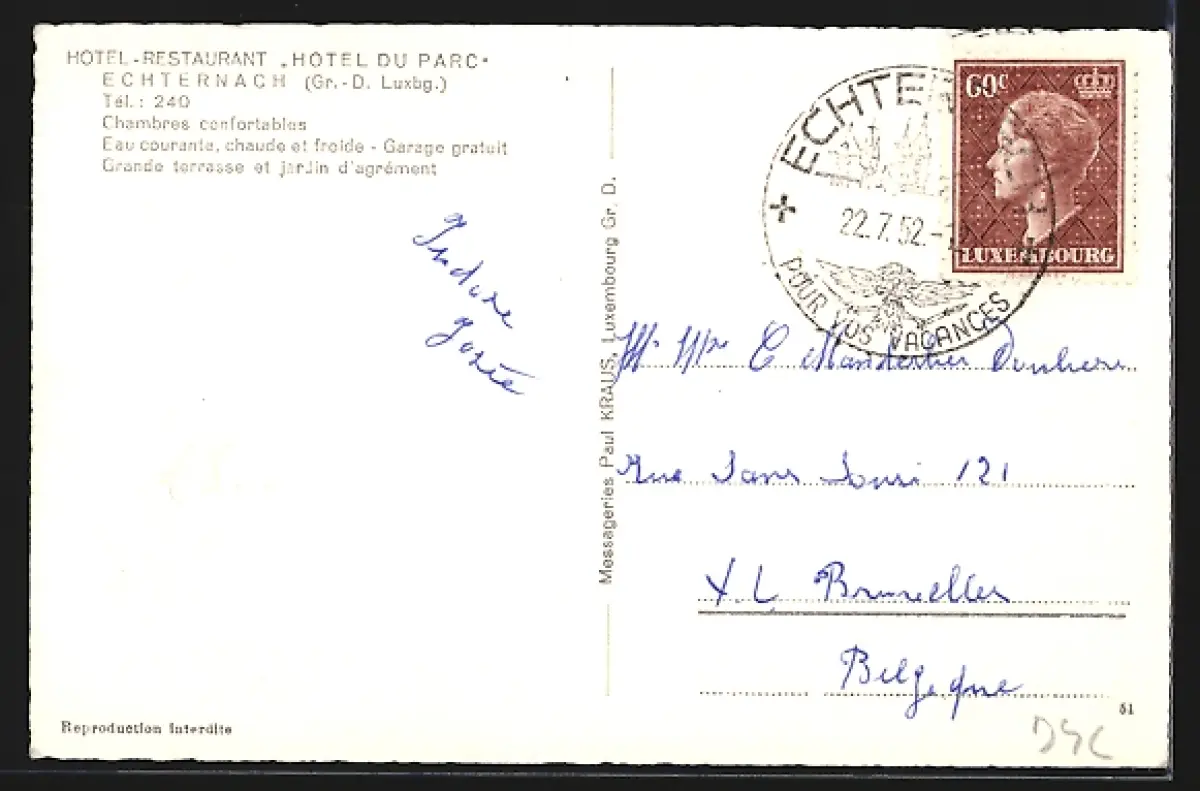 HOTEL-RESTAURANT „HOTEL DU PARC“
ECHTERNACH (Gr.-D. Luxbg.)
Tél.: 240
Chambres confortables
Eau courante, chaude et froide - Garage gratuit
Grande terrasse et jardin d'agrément
Josée
Reproduction interdite
Messageries Paul KRAUS, Luxembourg Gr. D.
ECHTE
22.7.52.-
POUR VOS VACANCES
60c
LUXEMBOURG
C
Rue Sans Souci 121
XL Bruxelles
Belgique
51